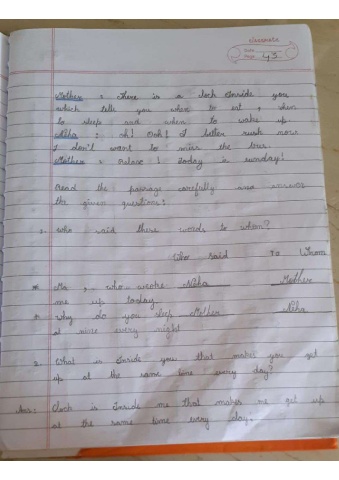 classmate
Date
Page 43
Mother : There is a clock Inside you
which tells you when to eat , when
to sleep and when to wake up
Neha : oh! Ooh! I better rush now
I don't want to miss the bus.
Mother : Relax ! Today is sunday!
Read the passage carefully and answer
the given questions:
1. who said these words to whom?
Who said To Whom
* Ma , who woke Neha Mother
me up today.
* why do you sleep Mother Neha
at nine every night
2. What is Inside you that makes you get
up at the same time every day?
Ans: Clock is Inside me that makes me get up
at the same time every day.